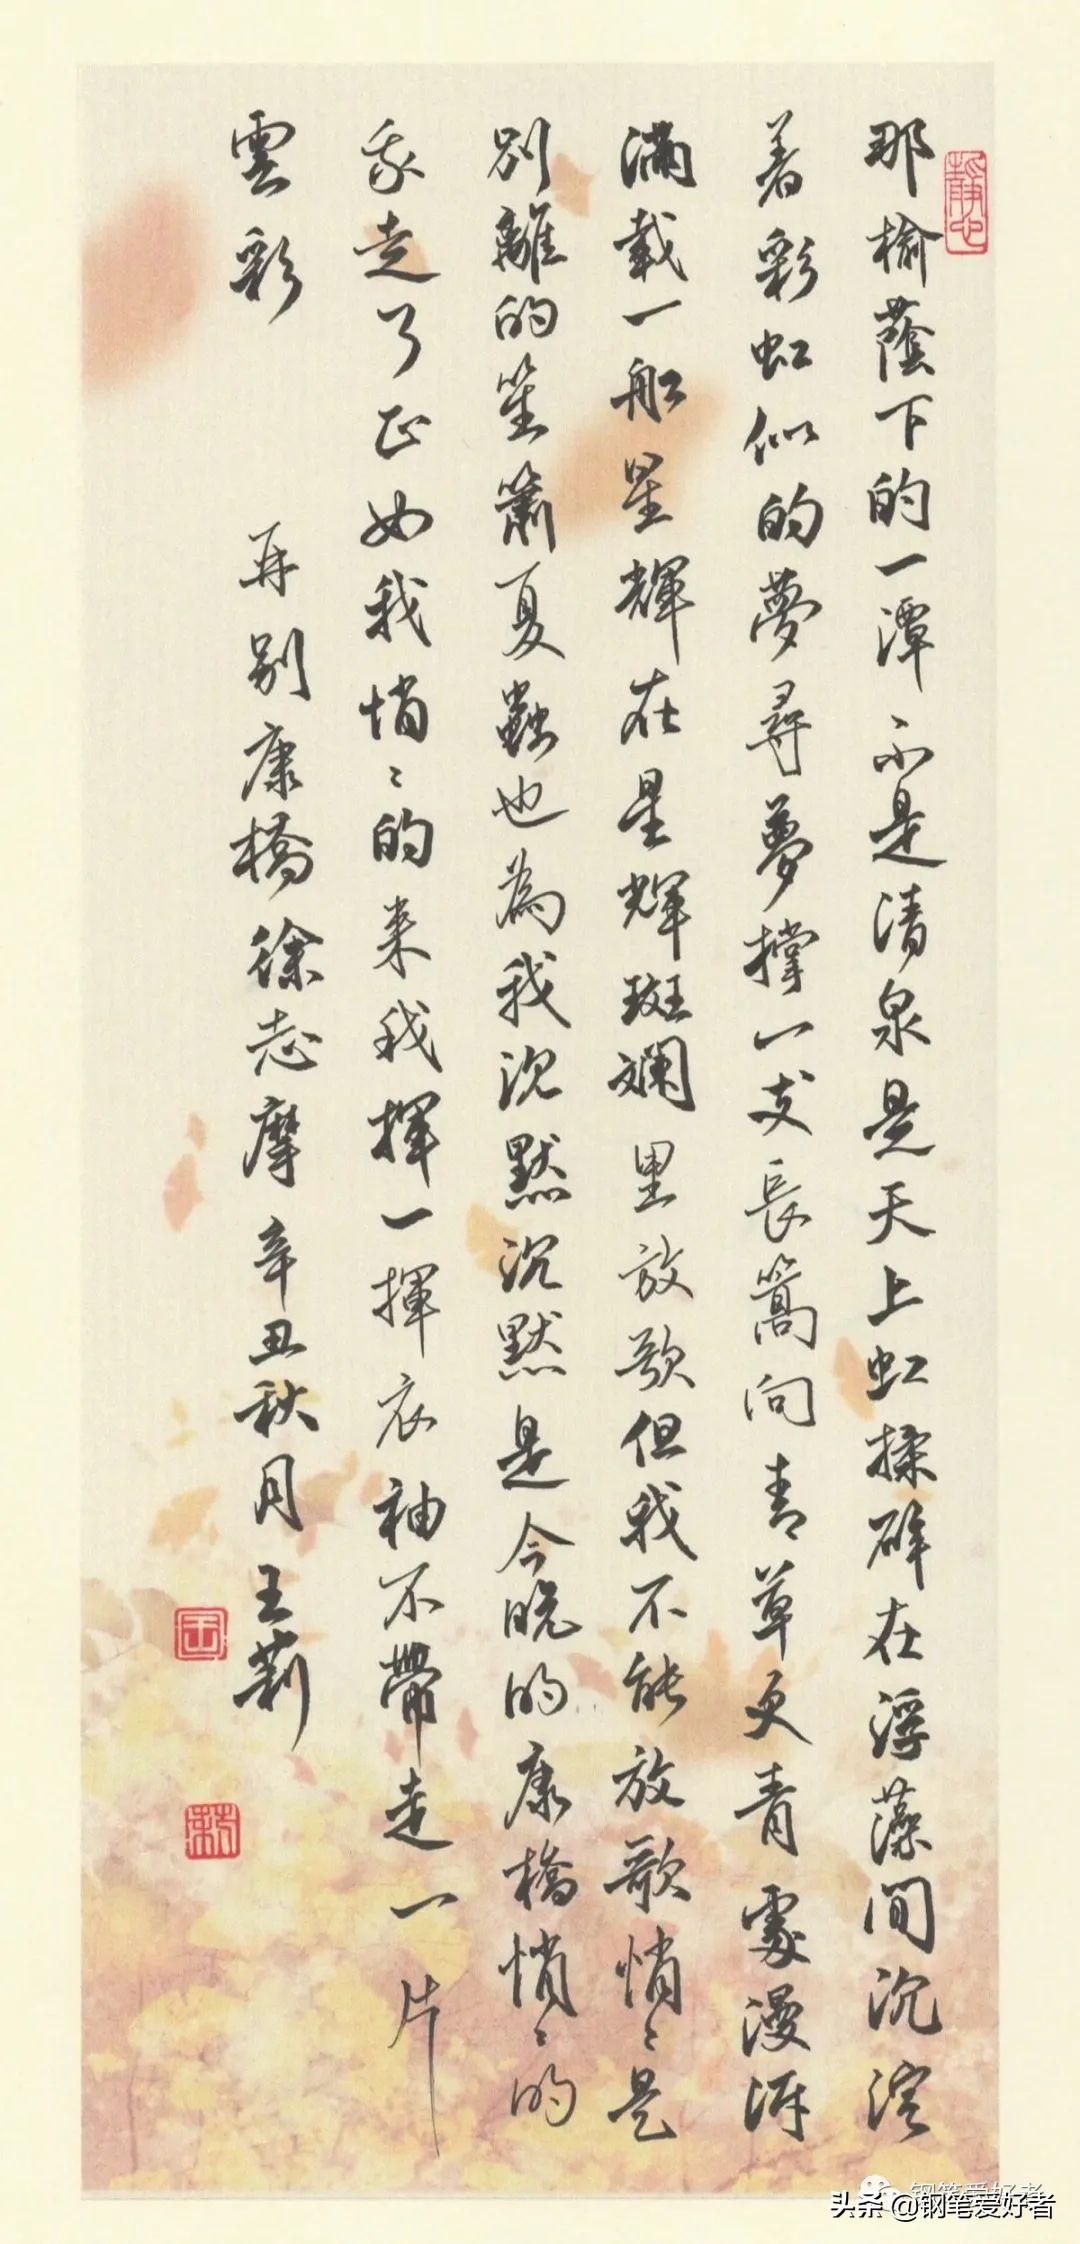 靜心
那榆蔭下的一潭不是清泉是天上虹揉碎在浮藻間沉淀
着彩虹似的夢尋夢撐一支長篙向青草更青處漫溯
滿載一船星輝在星輝斑斕里放歌但我不能放歌悄〻是
别離的笙簫夏蟲也為我沉默沉默是今晚的康橋悄〻的
我走了正如我悄〻的来我揮一揮衣袖不帶走一片
雲彩 再别康橋徐志摩辛丑秋月王莉
王
莉
钢笔爱好者
头条 @钢笔爱好者